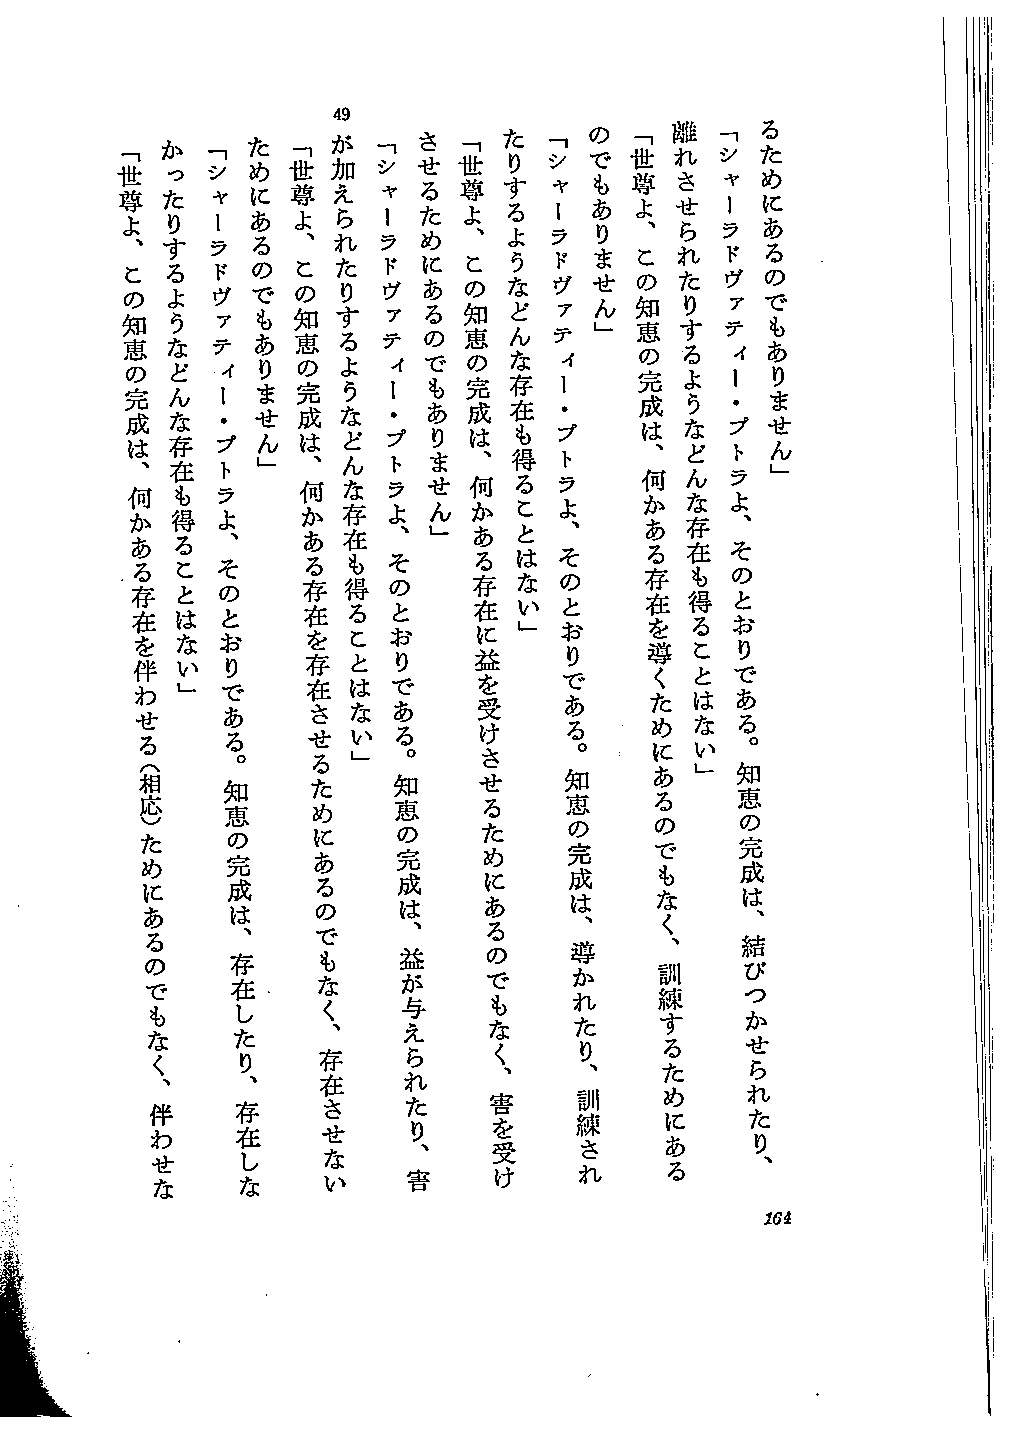 るためにあるのでもありません」
「シャーラドヴァティー・プトラよ、そのとおりである。知恵の完成は、結びつかせられたり、
離れさせられたりするようなどんな存在も得ることはない」
「世尊よ、この知恵の完成は、何かある存在を導くためにあるのでもなく、訓練するためにある
のでもありません」
「シャーラドヴァティー・プトラよ、そのとおりである。知恵の完成は、導かれたり、訓練され
たりするようなどんな存在も得ることはない」
「世尊よ、この知恵の完成は、何かある存在に益を受けさせるためにあるのでもなく、害を受け
させるためにあるのでもありません」
「シャーラドヴァティー・プトラよ、そのとおりである。知恵の完成は、益が与えられたり、害
49
が加えられたりするようなどんな存在も得ることはない」
「世尊よ、この知恵の完成は、何かある存在を存在させるためにあるのでもなく、存在させない
ためにあるのでもありません」
「シャーラドヴァティー・プトラよ、そのとおりである。知恵の完成は、存在したり、存在しな
かったりするようなどんな存在も得ることはない」
「世尊よ、この知恵の完成は、何かある存在を伴わせる(相応)ためにあるのでもなく、伴わせな
164